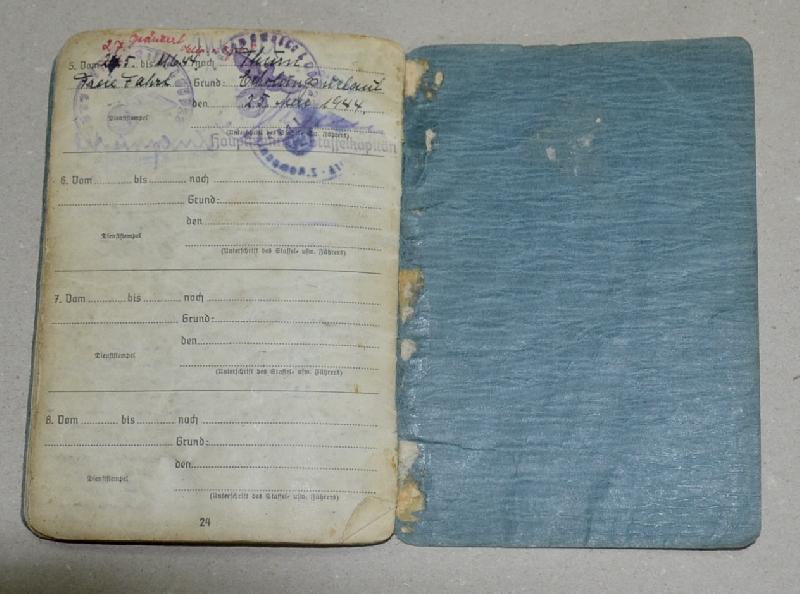 27. geändert
5. Vom 27.5. bis 11.6.44. nach Thurm
Freie Fahrt Grund: Erholungsurlaub
den 25. Mai 1944.
Dienststempel
(Unterschrift des Staffel- usw. Führers)
Hauptmann u. Staffelkapitän
6. Vom bis nach
Grund:
den
Dienststempel
(Unterschrift des Staffel- usw. Führers)
7. Vom bis nach
Grund:
den
Dienststempel
(Unterschrift des Staffel- usw. Führers)
8. Vom bis nach
Grund:
den
Dienststempel
(Unterschrift des Staffel- usw. Führers)
24